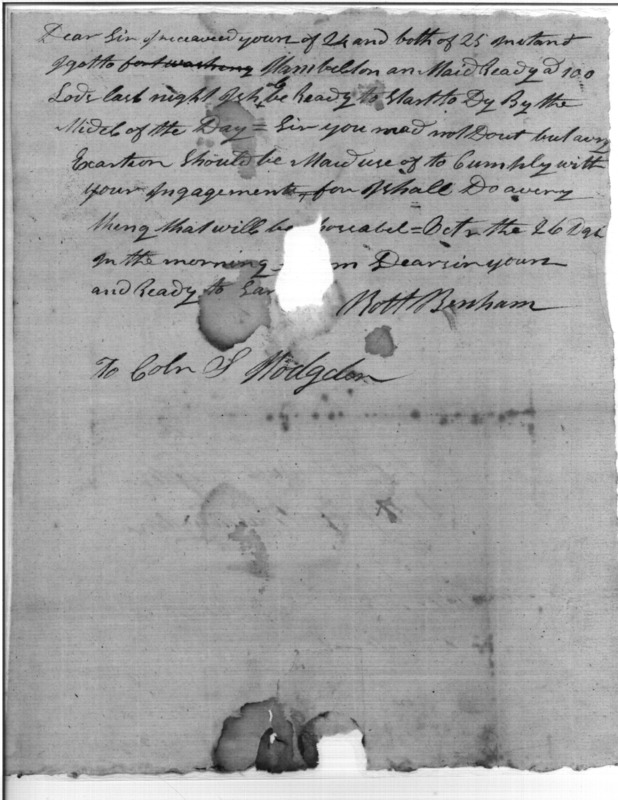 Dear Sir I receaved yours of 24 and both of 25 Instant
I got to fort washing Hambelton an Maid Ready a 100
Lods last night I sh be Ready to Start to Dy By the
Midel of the Day = Sir you nead not Dout but avry
Exartion Should be Maid use of to Cumply with
your Ingagements, for I shall Do avery
thing that will be posabel = Octr the 26 Day
In the morning I am Dear sir yours
and Ready to Sar
Robt Benham
To Coln S Hodgdon